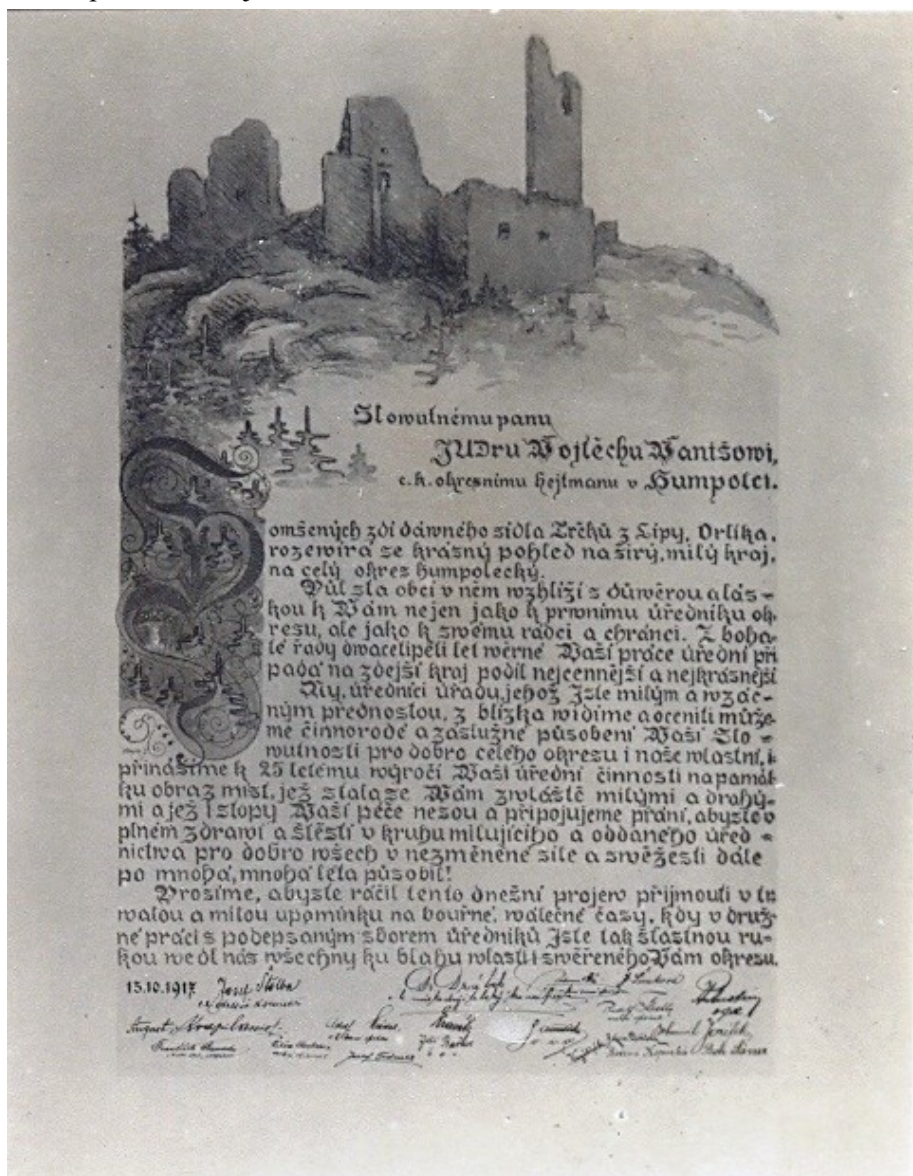 Slowutnému panu
JUDru Wojtěchu Wantšowi,
c. k. okresnímu hejtmanu v Humpolci.
S omšených zdí dáwného sídla Trčků z Lípy, Orlíka,
rozewírá se krásný pohled na širý, milý kraj,
na celý okres humpolecký.
Půl sta obcí v něm wzhlíží s důwěrou a lás-
kou k Wám nejen jako k prwnímu úředníku ok-
resu, ale jako k swému rádci a chránci. Z boha-
té řady dwacetipěti let wěrné Waší práce úřední při
padá na zdejší kraj podíl nejcennější a nejkrásnější
My, úředníci úřadu, jehož Jste milým a wzác-
ným přednostou, z blízka widíme a oceniti může-
me činnorodé a záslužné působení Waší Slo-
wutnosti pro dobro celého okresu i naše wlastní, i
přinášíme k 25 letému wýročí Waší úřední činnosti na památ
ku obraz míst, jež stala se Wám zwláště milými a drahý-
mi a jež i stopy Waší péče nesou a připojujeme přání, abyste v
plném zdrawí a štěstí v kruhu milujícího a oddaného úřed-
nictwa pro dobro wšech v nezměněné síle a swěžesti dále
po mnohá, mnohá léta působil!
Prosíme, abyste ráčil tento dnešní projew přijmouti v tr
walou a milou upomínku na bouřné, wálečné časy, kdy v druž-
né práci s podepsaným sborem úředníků Jste tak šťastnou ru-
kou wedl nás wšechny ku blahu wlasti i swěřeného Wám okresu.
15.10.1917 Josef Štolba
August
František
Josef